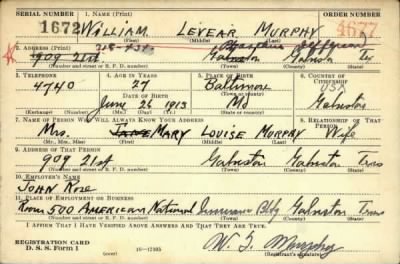 SERIAL NUMBER 1. NAME (Print) ORDER NUMBER
1672 WILLIAM LEVEAR MURPHY 4677
(First) (Middle) (Last)
2. ADDRESS (Print) 218-43 St Jefferson
909 21st Galveston Galveston Tex
(Number and street or R. F. D. number) (Town) (County) (State)
3. TELEPHONE 4. AGE IN YEARS 5. PLACE OF BIRTH 6. COUNTRY OF CITIZENSHIP
4740 27 Baltimore USA
DATE OF BIRTH (Town or county)
June 26 1913 Md Galveston
(Exchange) (Number) (Mo.) (Day) (Yr.) (State or country)
7. NAME OF PERSON WHO WILL ALWAYS KNOW YOUR ADDRESS 8. RELATIONSHIP OF THAT PERSON
Mrs. Jane MARY LOUISE MURPHY Wife
(Mr., Mrs., Miss) (First) (Middle) (Last)
9. ADDRESS OF THAT PERSON
909 21st Galveston Galveston Texas
(Number and street or R. F. D. number) (Town) (County) (State)
10. EMPLOYER'S NAME
JOHN ROSE
11. PLACE OF EMPLOYMENT OR BUSINESS
Room 500 American National Insurance Bldg Galveston Texas
(Number and street or R. F. D. number) (Town) (County) (State)
I AFFIRM THAT I HAVE VERIFIED ABOVE ANSWERS AND THAT THEY ARE TRUE.
REGISTRATION CARD
D. S. S. Form 1 (over) 16-17105 W. L. Murphy
(Registrant's signature)